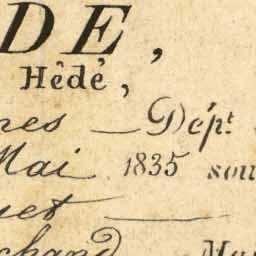 DE,
Hédé,
nes — Dépt
Mai 1835 sou
uet —
chand